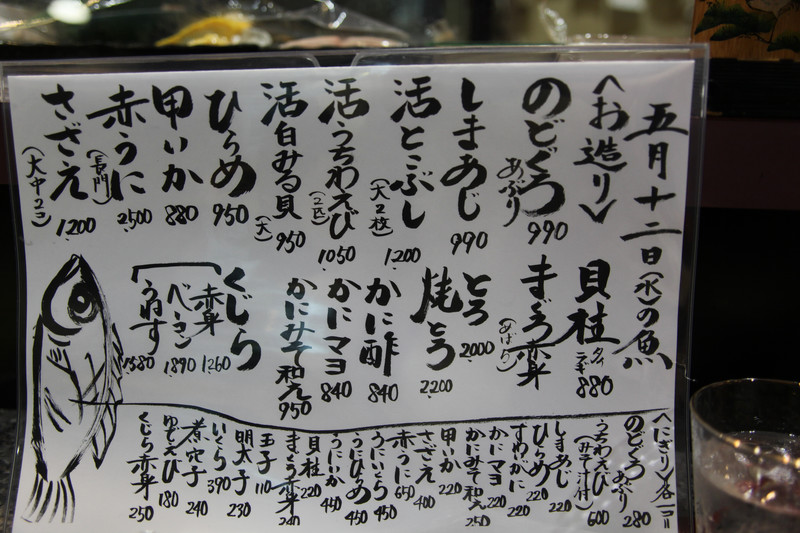 五月十二日(水)の魚
<お造り>
のどぐろ あぶり 990
しまあじ 990
活とこぶし (大2枚) 1200
活うちわえび (2匹) 1050
活白みる貝 (大) 950
ひらめ 950
甲いか 880
赤うに (長門) 2500
さざえ (大中2コ) 1200
貝柱 880
まぐろ赤身
とろ 2000
焼とろ 2200
かに酢 840
かにマヨ 840
かにみそ和え 950
くじら
赤身 1260
ベーコン 1890
うねす 1580
<にぎり>各一コ
のどぐろ あぶり 280
うちわえび (みそ汁付) 600
しまあじ 220
ひらめ 220
すわがに 220
かにマヨ 220
かにみそ和え 250
甲いか 220
さざえ 400
赤うに 650
うにいくら 450
うにひらめ 450
うにいか 450
貝柱 220
まぐろ赤身 240
玉子 110
明太子 230
いくら 390
煮穴子 240
ゆでえび 180
くじら赤身 250